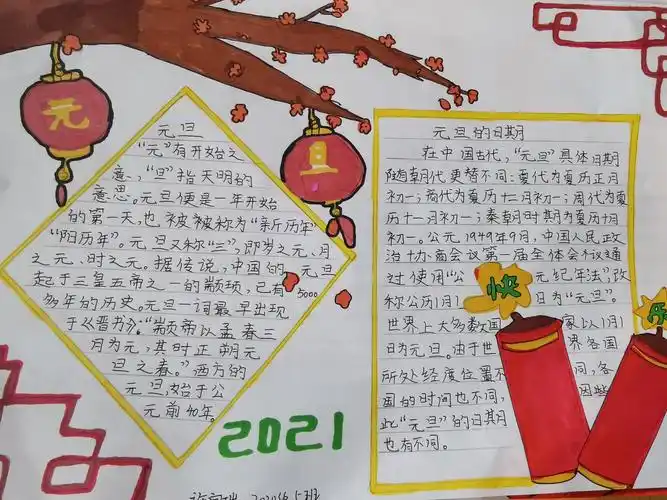 元
旦
元旦
“元”有开始之
意、“旦”指天明的
意思。元旦便是一年开始
的第一天,也被被称为“新历年”
“阳历年”。元旦又称“三”,即岁之元、月
之元、时之元。据传说,中国的元旦
起于三皇五帝之一的颛顼,已有5000
多年的历史。元旦一词最早出现
于《晋书》:“颛帝以孟春三
月为元,其时正朔元
旦之春。”西方的
元旦始于公
元前40年。
2021
元旦的日期
在中国古代,“元旦”具体日期
随朝代更替不同:夏代为夏历正月
初一;商代为夏历十二月初一;周代为夏
历十一月初一;秦朝时期为夏历十月
初一。公元1949年9月,中国人民政
治协商会议第一届全体会议通
过使用“公元纪年法”,改
称公历1月1日为“元旦”。
世界上大多数国家以1月1
日为元旦。由于世界各国
所处经度位置不同,各
国的时间也不同,因些
此“元旦”的日其月
也有不同。
快
乐